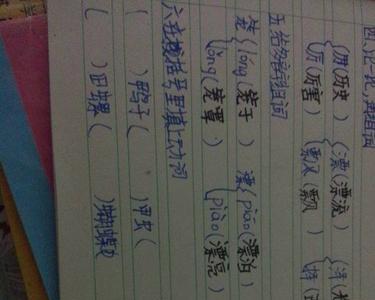 四、比一比,再组词
历(历史) 漂(漂流)
厉(厉害) 飘(飘)
五、给多音字组词
笼 lóng(笼子) 漂 piāo(漂泊)
lǒng(笼罩) piào(漂亮)
六、在括号里填上动词
( )鸭子 ( )甲虫 (
( )田螺 ( )蝴蝶